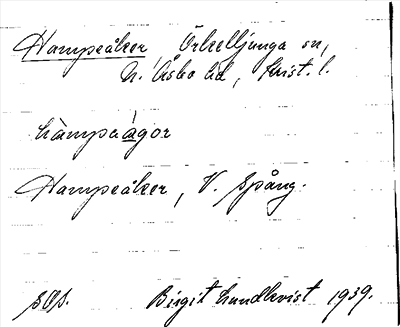 Hampeåker, Örkelljunga sn,
N. Åsbo hd, Krist. l.
hàmpeágor
Hampeåker, V. Spång.
sOs. Birgit Lundkvist 1939.